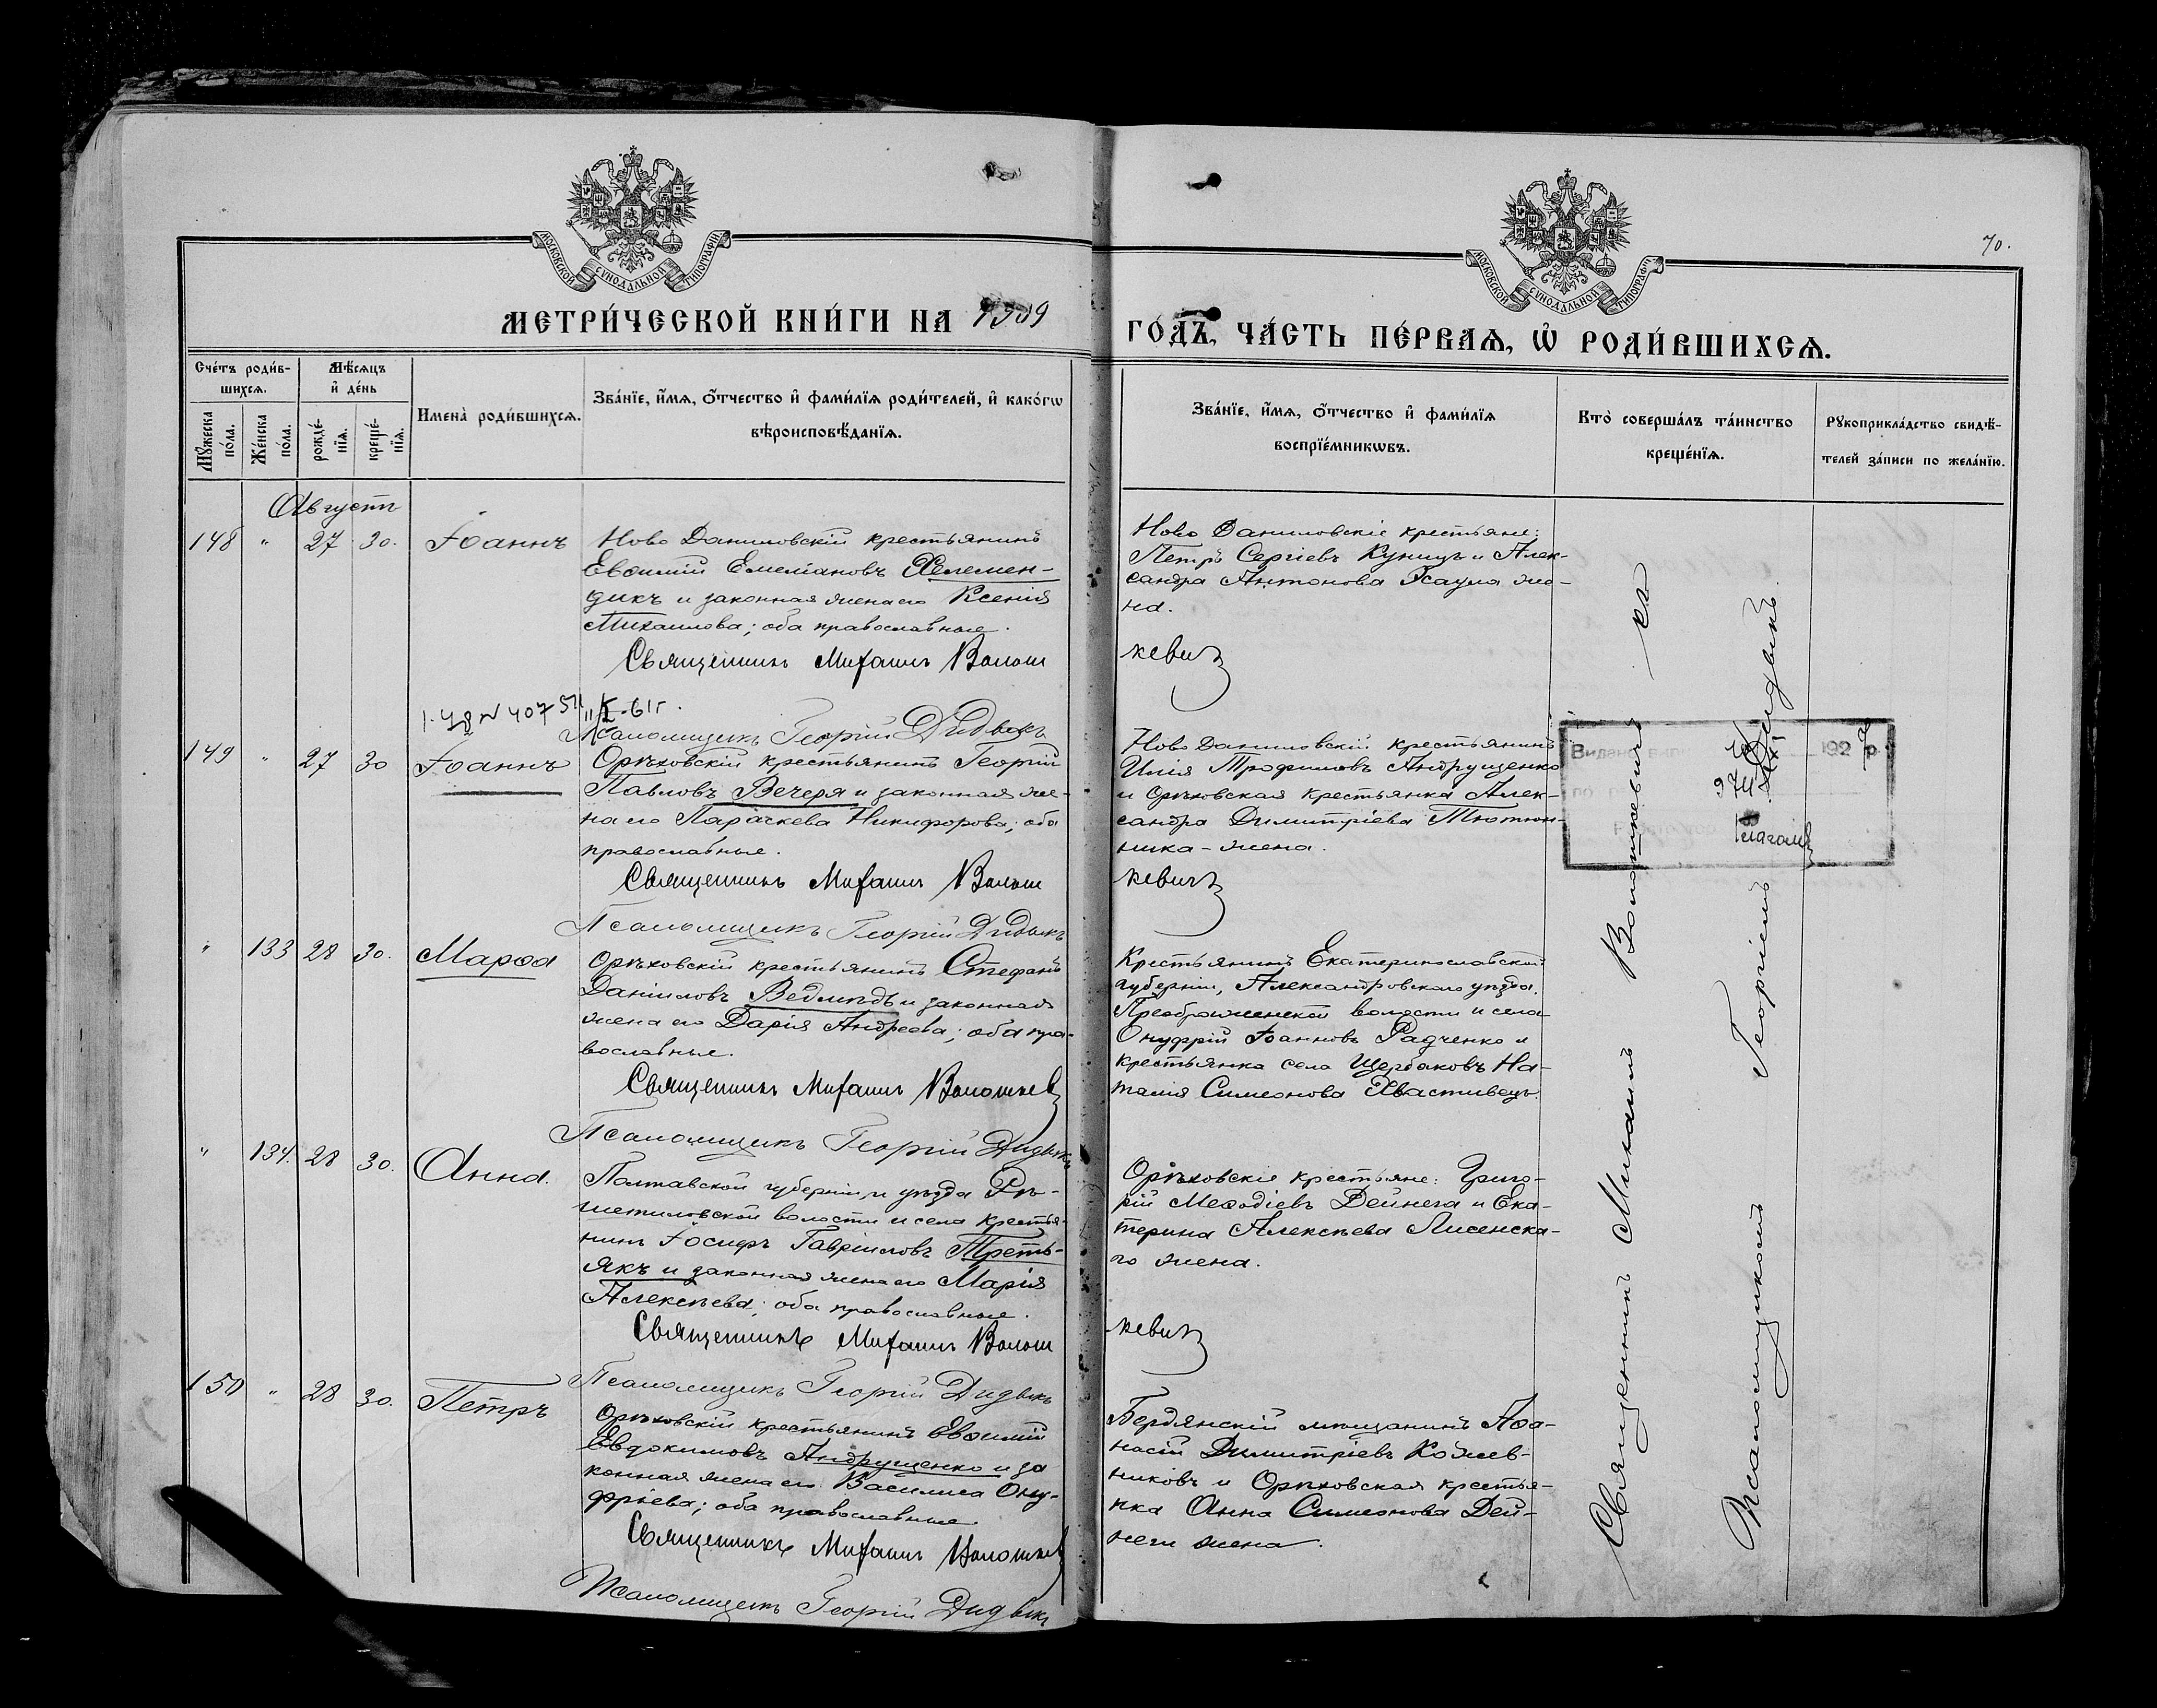 70.
МОСКОВСКОЙ СѴНОДАЛЬНОЙ ТИПОГРАФІИ
МОСКОВСКОЙ СѴНОДАЛЬНОЙ ТИПОГРАФІИ
МЕТРИ́ЧЕСКОЙ КНИ́ГИ НА 1909
ГО́ДЪ, ЧА́СТЬ ПЕ́РВАѦ, Ѡ҆ РОДИ́ВШИХСѦ.
Сче́тъ роди́в-
шихсѧ.
Мѣ́сѧцъ
и҆ де́нь
Мꙋ́жеска
по́ла.
Же́нска
по́ла.
рожде́-
нїѧ.
креще́-
нїѧ.
Имена̀ роди́вшихсѧ.
Зва́нїе, и҆́мѧ, ѻ҆́тчество и҆ фами́лїѧ роди́телей, и҆ како́гѡ
вѣроисповѣ́данїѧ.
Зва́нїе, и҆́мѧ, ѻ҆́тчество и҆ фами́лїѧ
воспрїе́мникѡвъ.
Кто̀ соверша́лъ та́инство
креще́нїѧ.
Рꙋкоприкла́дство свидѣ́-
телей за́писи по жела́нїю.
Августъ
148 " 27 30. Іоаннъ
Ново Даниловскій крестьянинъ
Евѳимій Емеліановъ Желемен-
дикъ и законная жена его Ксенія
Михаилова; оба православные.
Священникъ Михаилъ Волош
Ново Даниловскіе крестьяне:
Петръ Сергіевъ Куницъ и Алек-
сандра Антонова Эсаула же-
на.
кевичъ
Псаломщикъ Георгій Дидыкъ
149 " 27 30 Іоаннъ
Орѣховскій крестьянинъ Георгій
Павловъ Вечеря и законная же-
на его Параскева Никифорова; оба
православные.
Священникъ Михаилъ Волош
Ново Даниловскій крестьянинъ
Илія Трофимовъ Андрущенко
и Орѣховская крестьянка Алек-
сандра Димитріева Тютюн-
ника - жена.
кевичъ
Псаломщикъ Георгій Дидыкъ
" 133 28 30. Марѳа
Орѣховскій крестьянинъ Стефанъ
Даніиловъ Ведмидь и законная
жена его Дарія Андреева; оба пра-
вославные.
Священникъ Михаилъ Волошкев
Крестьянинъ Екатеринославской
губерніи, Александровскаго уѣзда,
Преображенской волости и села
Онуфрій Іоанновъ Радченко и
крестьянка села Щербаковъ На-
талія Симеонова Хвастивецъ.
Псаломщикъ Георгій Дидыкъ
" 134. 28 30. Анна.
Полтавской губерніи и уѣзда Рѣ-
шетиловской волости и села крестья-
нинъ Іосифъ Гавріиловъ Треть-
якъ и законная жена его Марія
Алексѣева; оба православные.
Священникъ Михаилъ Волош
Орѣховскіе крестьяне: Григо-
рій Меѳодіевъ Дейнега и Ека-
терина Алексѣева Лисенска-
го жена.
кевичъ
Псаломщикъ Георгій Дидыкъ
150 " 28 30. Петръ
Орѣховскій крестьянинъ Евѳимій
Евдокимовъ Андрущенко и за
конная жена его Василиса Ону-
фріева; оба православные.
Священникъ Михаилъ Волошкев
Бердянскій мѣщанинъ Аѳа-
насій Димитріевъ Кожев-
никовъ и Орѣховская крестья-
нка Анна Симеонова Дей-
неги жена.
Псаломщикъ Георгій Дидыкъ
Священникъ Михаилъ Волошкевичъ съ
Псаломщикомъ Георгіемъ Дидыкъ.
Видано 192 р.